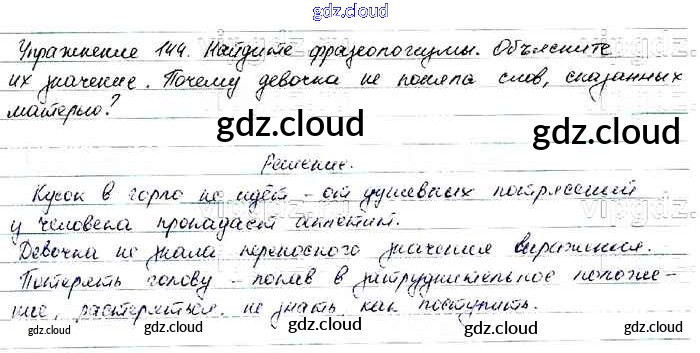 gdz.cloud
Упражнение 144. Найдите фразеологизмы. Объясните
их значение. Почему девочка не поняла слов, сказанных
матерью?
gdz.cloud
gdz.cloud
Решение.
Кусок в горло не идёт - от душевных потрясений
у человека пропадает аппетит.
gdz.cloud
gdz.cloud
Девочка не знала переносного значения выражения.
Потерять голову - попав в затруднительное положе-
ние, растеряться, не знать как поступить.
gdz.cloud
gdz.cloud
gdz.cloud
gdz.cloud
gdz.cloud